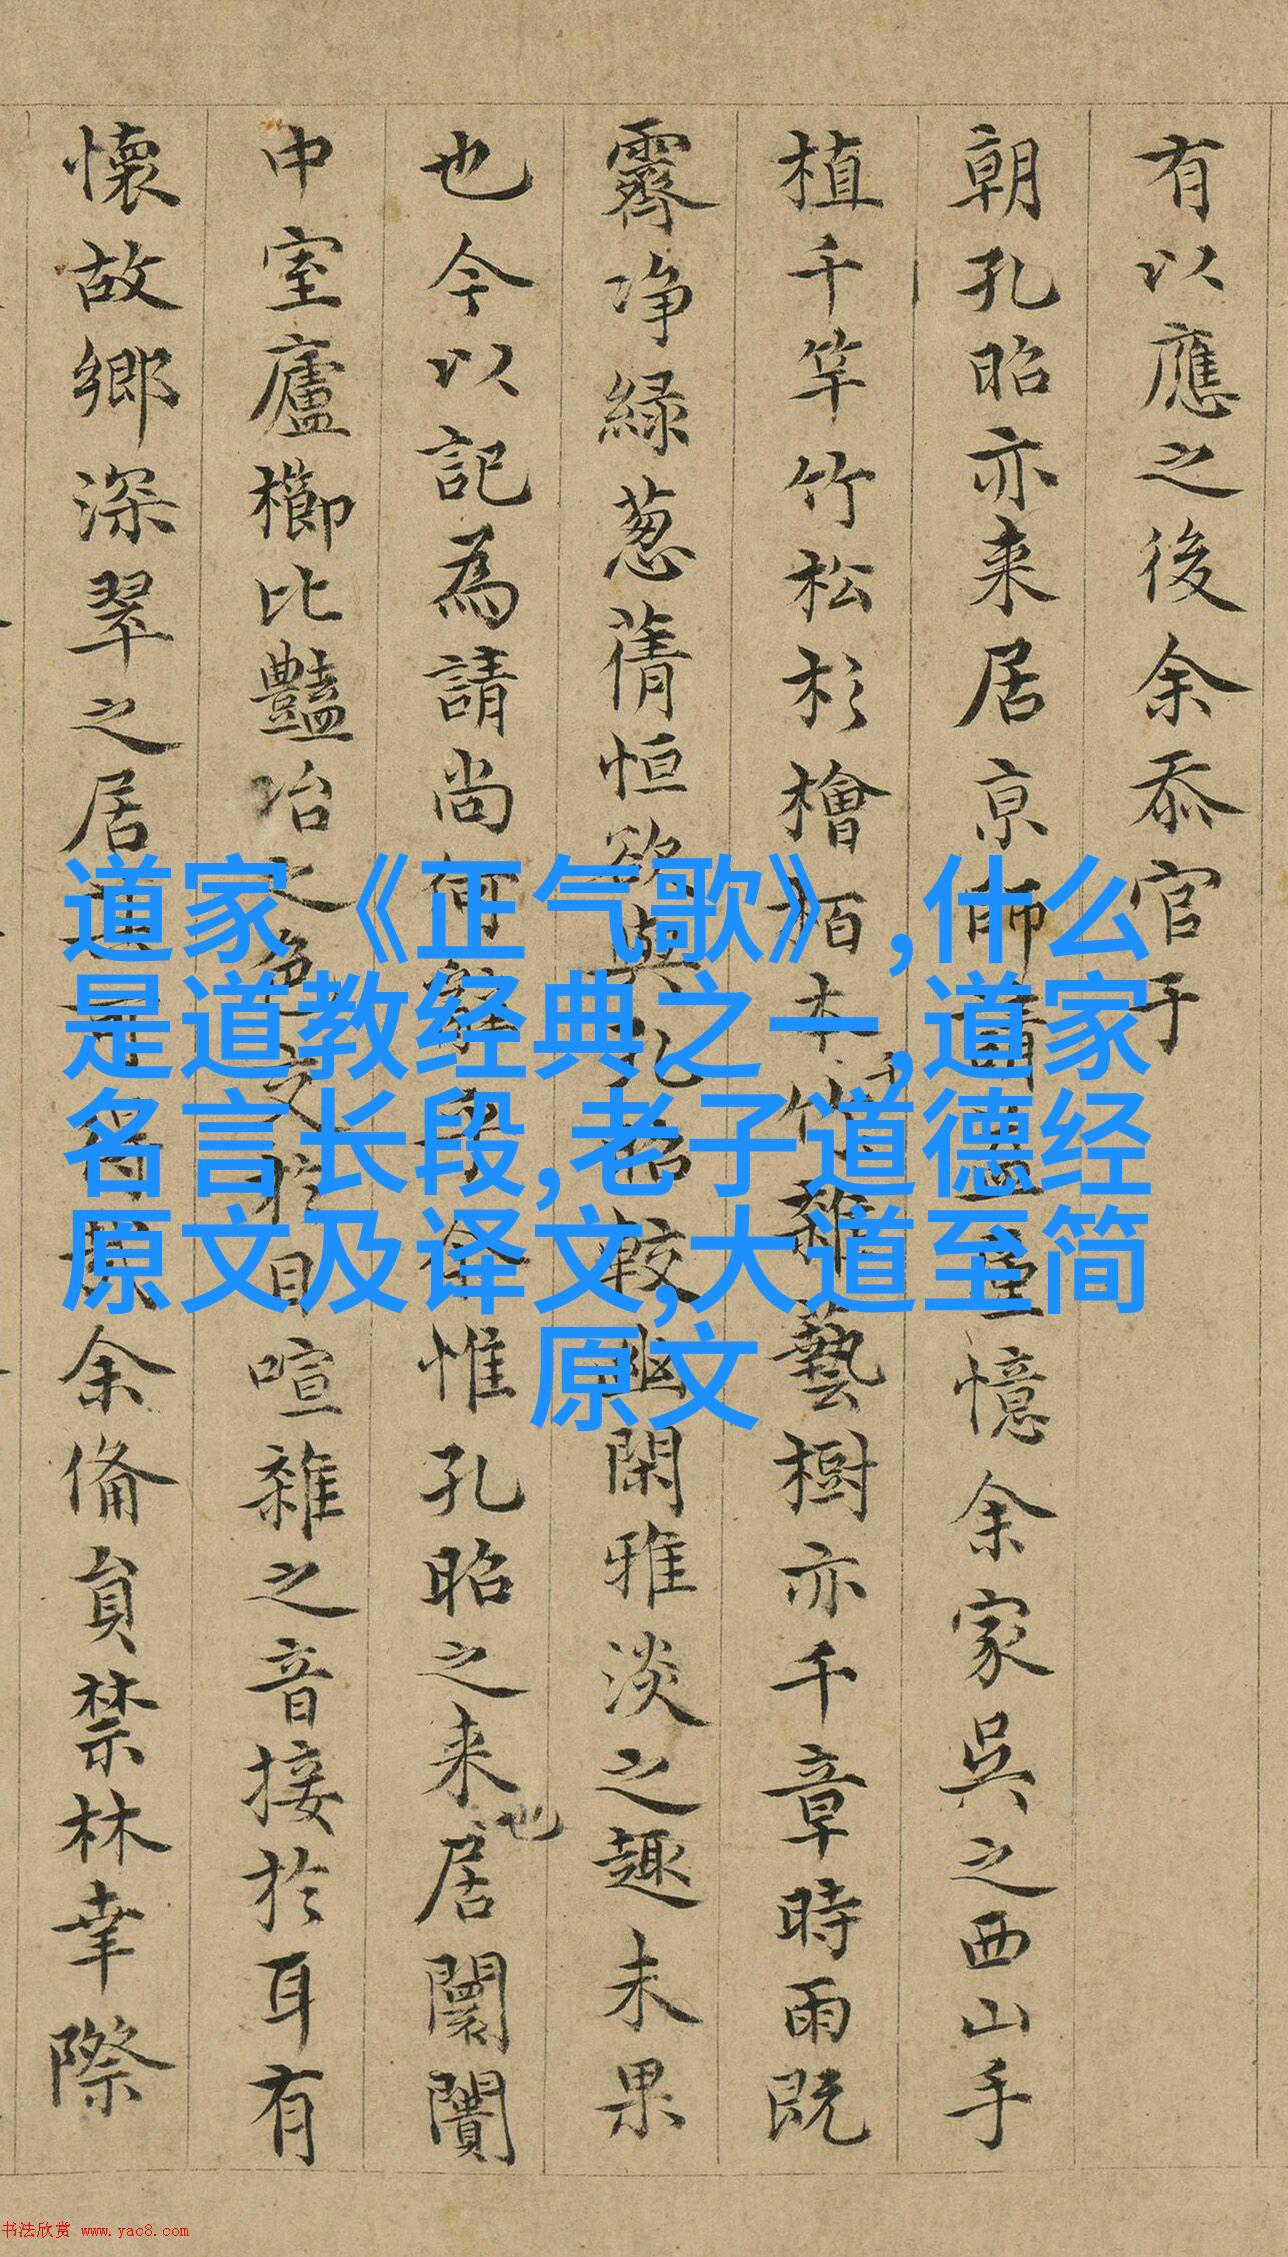 有以應之後余忝官于
朝孔昭亦来居京師書室憶余家吳之西山手
植千竿竹松杉檜栢本竹雜藝樹亦千章時雨既
千
霽净緑葱蒨恒欲與孔昭較幽閑雅淡之趣未果
也今以記為請尚何辭乎余惟孔昭之来居闤闠
也
中室廬櫛比豔冶之色交於目喧雜之音接於耳有
懷故鄉深翠之居余備員禁林幸際
道家《正气歌》,什么
是道教经典之一,道家
名言长段,老子道德经
原文及译文,大道至简
原文
书法欣赏 www.yac8.com